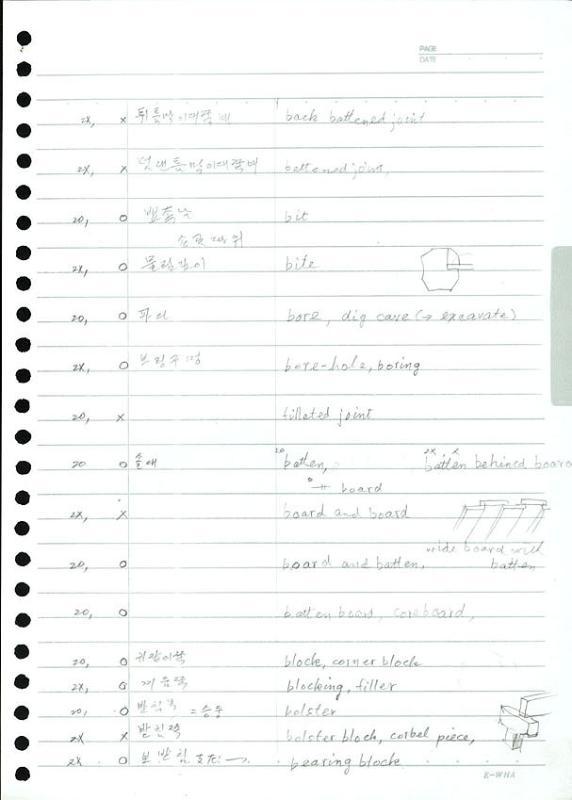 PAGE
DATE
2X, x 뒤틈막이대쪽벽 back battened joint
2X, x 덧댄틈막이대쪽벽 battened joint,
20, o bit
2X, o 물림길이 bite
20, o 파다 bore, dig cave (→ excavate)
2X, o 보링구멍 bore-hole, boring
20, x filleted joint
20 o 솔대 20 batten, 2X x batten behined board
board
2X, x board and board
wide board with
20, o board and batten, batten
20, o batten board, coreboard,
20, o block, corner block
2X, o 끼움쪽 blocking, filler
20, o bolster
2X x 받침쪽 bolster block, corbel piece,
2X o 보받침 bearing block
K-WHA